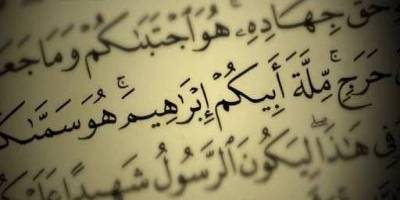 حَقَّ جِهَادِهِۦ ۚ هُوَ ٱجْتَبَىٰكُمْ وَمَا جَعَ
حَرَجٍ ۚ مِّلَّةَ أَبِيكُمْ إِبْرَٰهِيمَ ۚ هُوَ سَمَّىٰكُ
فِى هَٰذَا لِيَكُونَ ٱلرَّسُولُ شَهِيدًا عَلَيْكُ